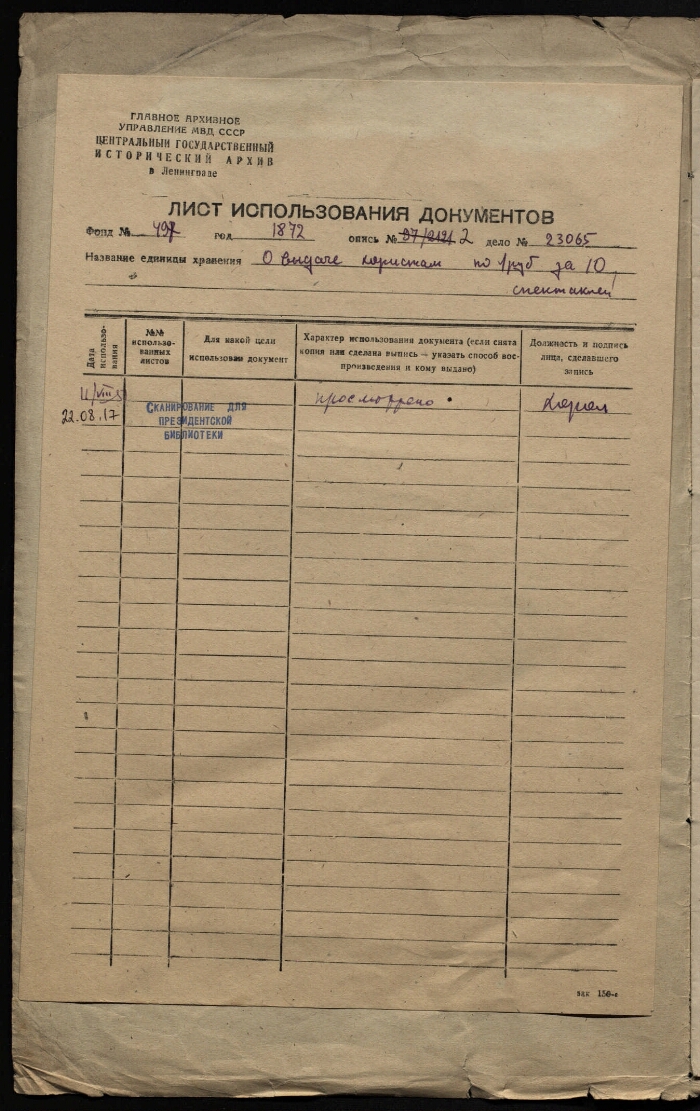 ГЛАВНОЕ АРХИВНОЕ
УПРАВЛЕНИЕ МВД СССР
ЦЕНТРАЛЬНЫЙ ГОСУДАРСТВЕННЫЙ
ИСТОРИЧЕСКИЙ АРХИВ
в Ленинграде
ЛИСТ ИСПОЛЬЗОВАНИЯ ДОКУМЕНТОВ
Фонд № 497 год 1872 опись № 97/2121 2 дело № 23065
Название единицы хранения О выдаче хористам по 1 руб за 10
спектаклей
Дата использо-
вания
№№
использо-
ванных
листов
Для какой цели
использован документ
Характер использования документа (если снята
копия или сделана выпись — указать способ вос-
произведения и кому выдано)
Должность и подпись
лица, сделавшего
запись
просмотрено
22.08.17
СКАНИРОВАНИЕ ДЛЯ
ПРЕЗИДЕНТСКОЙ
БИБЛИОТЕКИ
зак 150-с